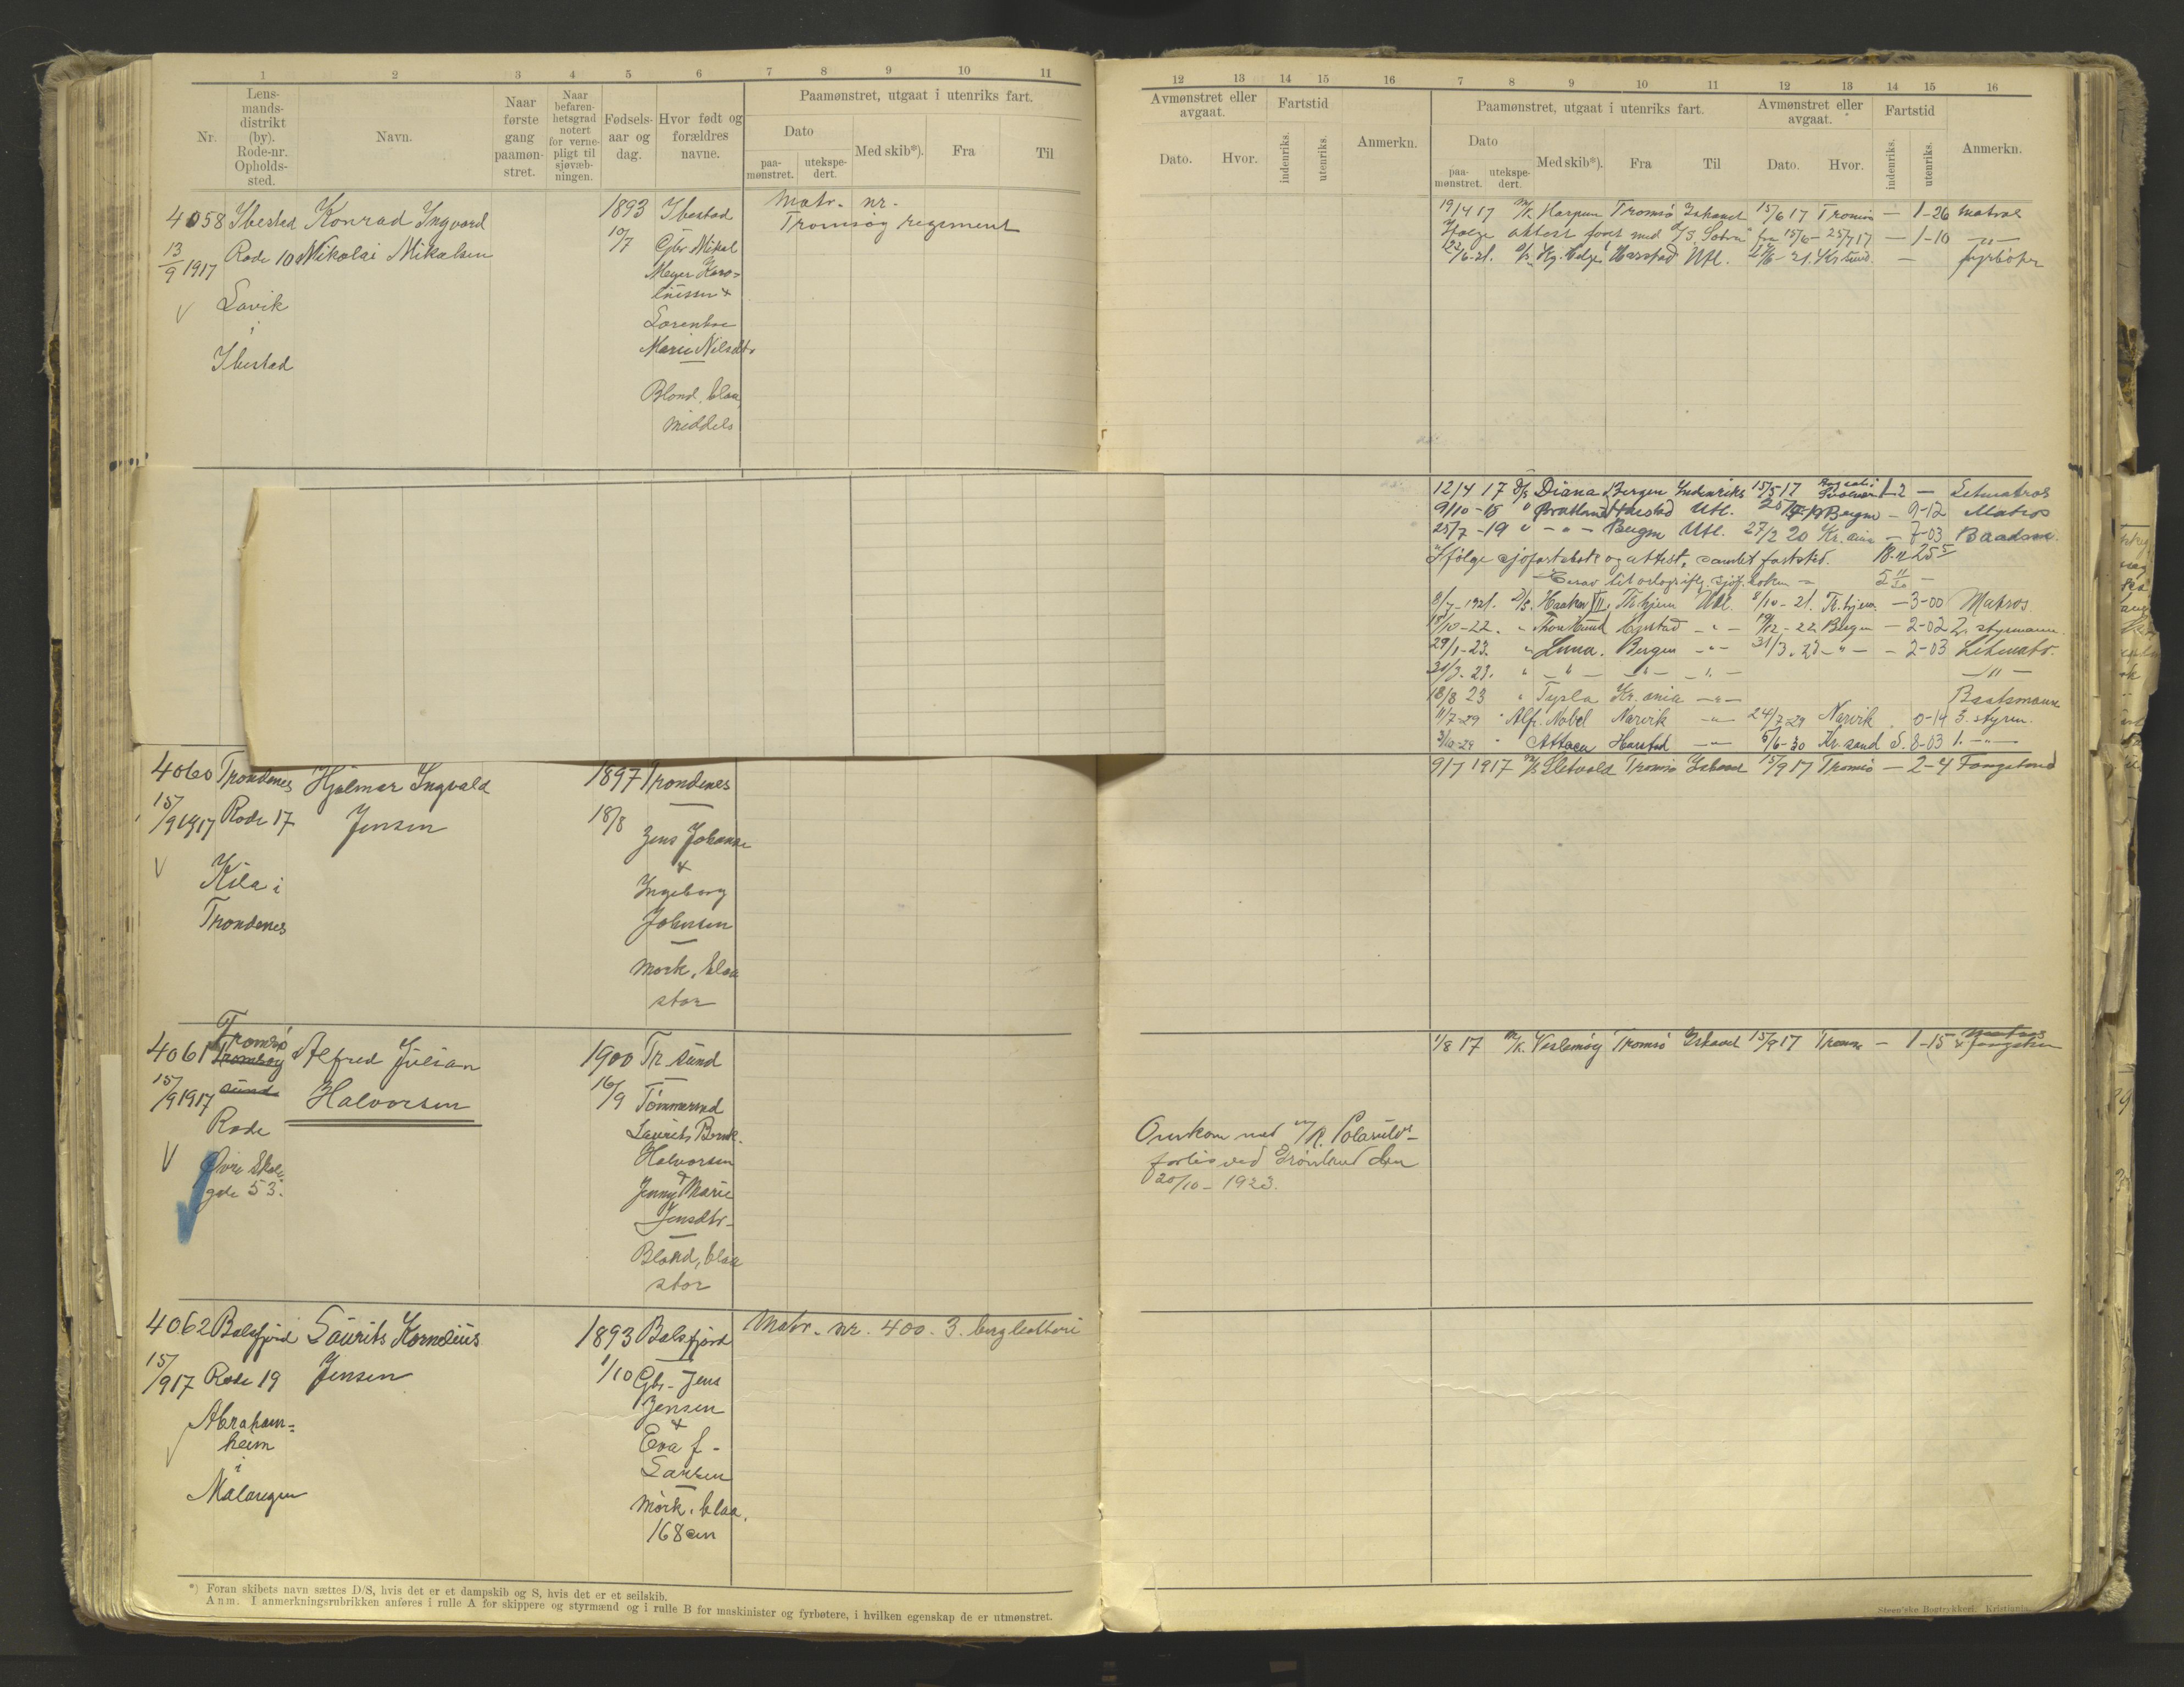 1 2 3 4 5 6 7 8 9 10 11
Nr.
Lens-
mands-
distrikt
(by).
Rode-nr.
Opholds-
sted.
Navn.
Naar
første
gang
paamøn-
stret.
Naar
befaren-
hetsgrad
notert
for verne-
pligt til
sjøvæb-
ningen.
Fødsels-
aar og
dag.
Hvor født og
forældres
navne.
Paamønstret, utgaat i utenriks fart.
Dato
paa-
mønstret.
utekspe-
dert.
Med skib*).
Fra
Til
4058 Ibestad Konrad Ingvard 1893 Ibestad Matr. nr.
13/9 1917 Rode 10 Nikolai Mikalsen 10/7 Gbr Mikal Tromsøg regiment
Meyer Karo-
linessen &
Lavik
Lorentse
i
Marie Nilsdtr
Ibestad
Blond, blaa
middels
4060 Trondenes Hjalmar Ingvald 1897 Trondenes
15/9 1917 Rode 17 Jensen 18/8
Jens Johanne
&
Kila i
Ingeborg
Trondenes
Johnsen
Mørk, blaa
stor
Tromsø
4061 Tromsøy Alfred Julian 1900 Tr. sund
15/9 1917 sund Halvorsen 16/9 Tømmermd
Rode
Laurits Bernt
Halvorsen
Øvre Skole
&
gde 53.
Jenny Marie
Jensdtr
Blond, blaa
stor
4062 Balsfjord Laurits Kornelius 1893 Balsfjord Matr. nr. 400. 3. bergbatteri
15/9 17 Rode 19 Jensen 1/10 Gbr. Jens
Jensen
Abraham-
&
heim
Eva f.
i
Larsen
Malangen
Mørk. blaa.
168 cm
*) Foran skibets navn sættes D/S, hvis det er et dampskib og S, hvis det er et seilskib.
Anm. I anmerkningsrubrikken anføres i rulle A for skippere og styrmænd og i rulle B for maskinister og fyrbøtere, i hvilken egenskap de er utmønstret.
12 13 14 15 16 7 8 9 10 11 12 13 14 15 16
Avmønstret eller
avgaat.
Dato. Hvor.
Fartstid
indenriks.
utenriks.
Anmerkn.
Paamønstret, utgaat i utenriks fart.
Dato
paa-
mønstret.
utekspe-
dert.
Med skib*). Fra Til
Avmønstret eller
avgaat.
Dato. Hvor.
Fartstid
indenriks.
utenriks.
Anmerkn.
19/4 17 M/K Harpun Tromsø Ishavet 15/6 17 Tromsø — 1-26 Matros
Ifølge attest faret med D/S. Sotra fra 15/6 - 25/7 17 — 1-10 —"—
Harstad Utl. fyrbøter
12/4 17 D/S Diana Bergen Indenriks 15/5 17 Svolvær 1-2 — Letmatros
9/10 - 18 " Bratland Harstad Utl. Bergen — 9-12 Matros
25/7 - 19 " — " — Bergen Utl. 27/2 20 Kr.ania — 7-03 Baadsm.
Ifølge sjøfartsbok og attest, samlet fartstid.
8/7 - 1921. D/S. Haakon VII, Tr.hjem Utl. 8/10 - 21. Tr.hjem. — 3-00 Matros.
10-22. " Harstad — " — 19/12 - 22 Bergen — 2-02 2. styrmann.
29/1 - 23. " Luna. Bergen — " — 31/3. 23 — " — — 2-03 Letmatr.
31/3 - 23. " — " — — " — — " — — " —
18/8 23 " Tysla Kr.ania — " — Baatsmann
11/7 - 29 " Alfr. Nobel Narvik — " — 24/7 - 29 Narvik. 0-14 3. styrm.
3/10 - 29 " Harstad — " — 6/6 - 30 Kr.sand S. 8-03 1. — " —
9/7 1917 M/S Sletvold Tromsø Ishavet 15/9 17 Tromsø — 2-4 Fangstmd
1/8 17 M/K. Veslemøy Tromsø Ishavet 15/9 17 Tromsø — 1-15 Matros
& fangstm
Omkom med M/K. Polarulvs
forlis ved Grønland den
20/10 - 1923.
Steen'ske Bogtrykkeri. Kristiania.